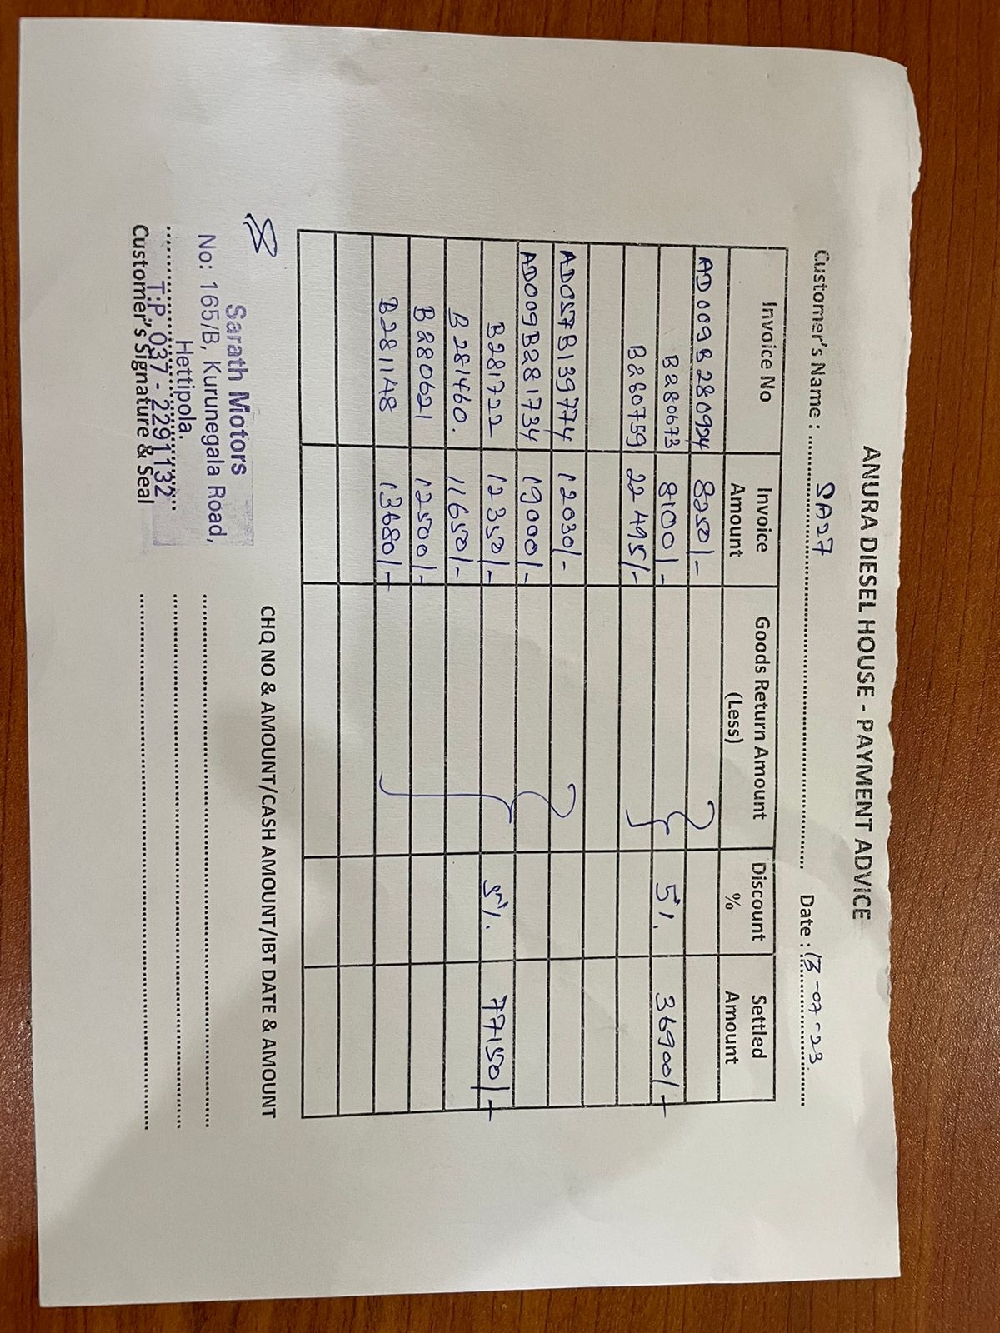 ANURA DIESEL HOUSE - PAYMENT ADVICE
Customer's Name : SA27 Date : 13-07-23
Invoice No Invoice Amount Goods Return Amount (Less) Discount % Settled Amount
AD009B280924 8250/-
B280673 8100/- 5%. 36900/-
B280759 22495/-
AD057B139774 12030/-
AD009B281734 19000/-
B281722 12350/- 5%. 77150/-
B281460. 11650/-
B280621 12500/-
B281148 13680/-
CHQ NO & AMOUNT/CASH AMOUNT/IBT DATE & AMOUNT
Sarath Motors
No: 165/B, Kurunegala Road,
Hettipola.
T.P. 037 - 2291132
Customer's Signature & Seal